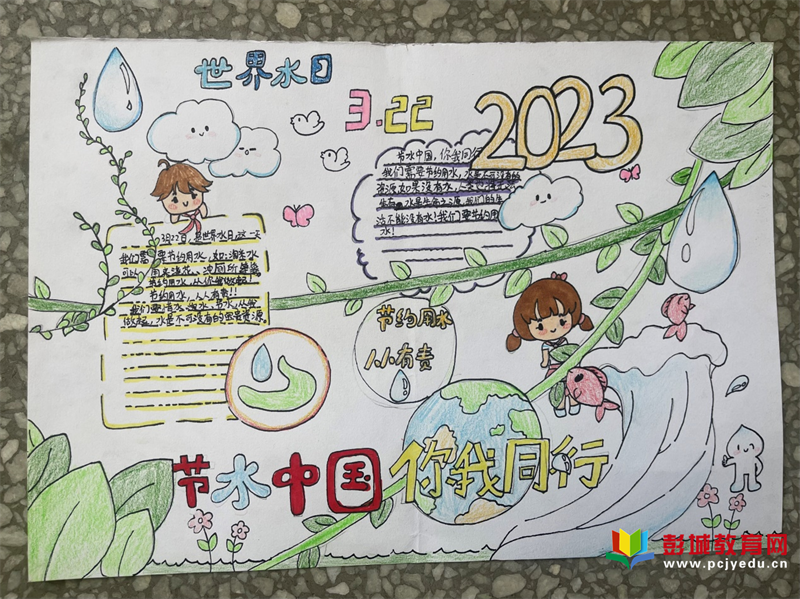 世界水日
3.22
2023
节水中国,你我同行
我们需要节约用水,水是不可没有的
资源,如果没有水,
生命。水是生命之源,我们的生
活不能没有水!我们要节约用
水!
3月22日,是世界水日,这一天
我们需要节约用水,如:淘米水
可以 用来浇花、冲厕所
节约用水,从你我做起!
节约用水,人人有责!!
我们要惜水、爱水、节水,从我
做起,水是不可没有的宝贵资源。
节约用水
人人有责
节水中国 你我同行
彭城教育网
www.pcjyedu.cn